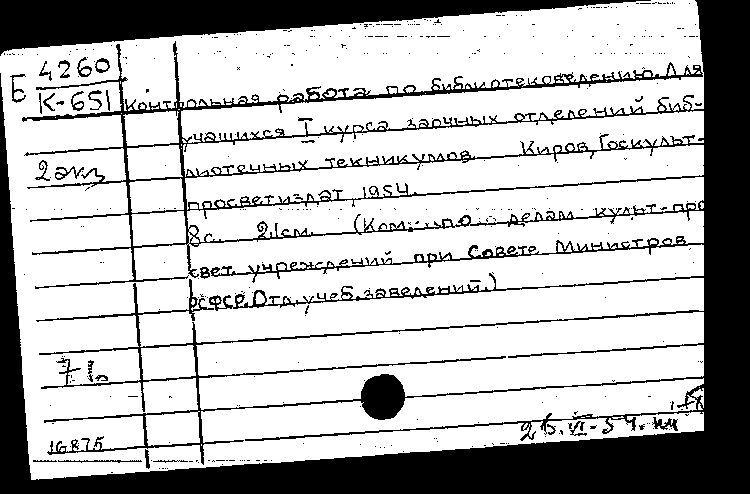 Б 4260
К-651
Контрольная работа по библиотековедению. Для
учащихся I курса заочных отделений биб-
лиотечных техникумов Киров, Госкульт-
2 экз
просветиздат, 1954.
8с. 21см. (Ком. по делам культ-про
свет. учреждений при Совете Министров
РСФСР. Отд. учеб. заведений.)
16875
VI-54.